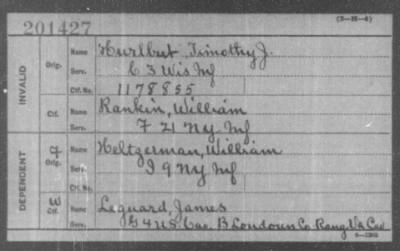 (3-26-6)
201427
INVALID
Orig. Name Hurlbut, Timothy J.
Serv. C 3 Wis Inf
Ctf. No. 1178855
Ctf. Name Rankin, William
Serv. F 21 NY Inf
DEPENDENT
Orig. Name Heltgerman, William
Serv. I 9 NY Inf
Ctf. No.
W Ctf. Name Leguard, James
Serv. G 4 US Cav. B Loudoun Co Rang. Va Cav